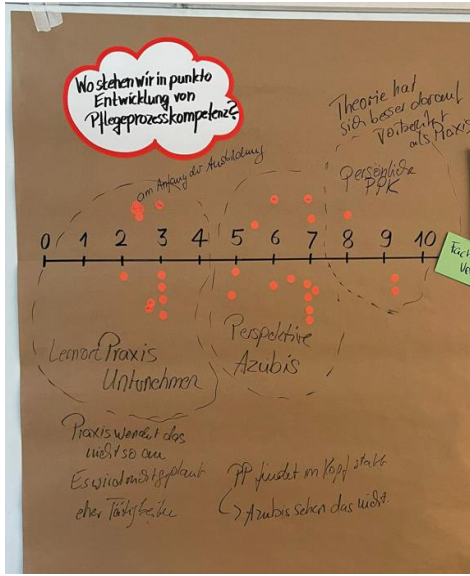 Wo stehen wir in punkto
Entwicklung von
Pflegeprozesskompetenz?
Theorie hat
sich besser darauf
vorbereitet
als Praxis
am Anfang der Ausbildung
Persönliche
PPK
0 1 2 3 4 5 6 7 8 9 10
Lernort Praxis
Unternehmen
Perspektive
Azubis
Praxis wendet das
nicht so an
Es wird nicht geplant
eher Tätigkeiten
PP findet im Kopf statt
Azubis sehen das nicht.